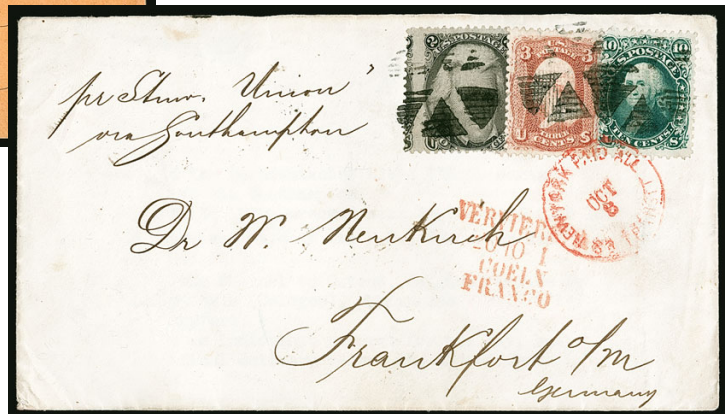 pr Stmr. Union"
via Southampton
2 U.S. POSTAGE 2
3 U.S. POSTAGE 3
U THREE CENTS S
10 U.S. POSTAGE 10
U TEN CENTS S
NEW YORK PAID ALL
OCT
3
Dr W. Neukirch
VERVIERS
10 1
COELN
FRANCO
Frankfort o/m
Germany